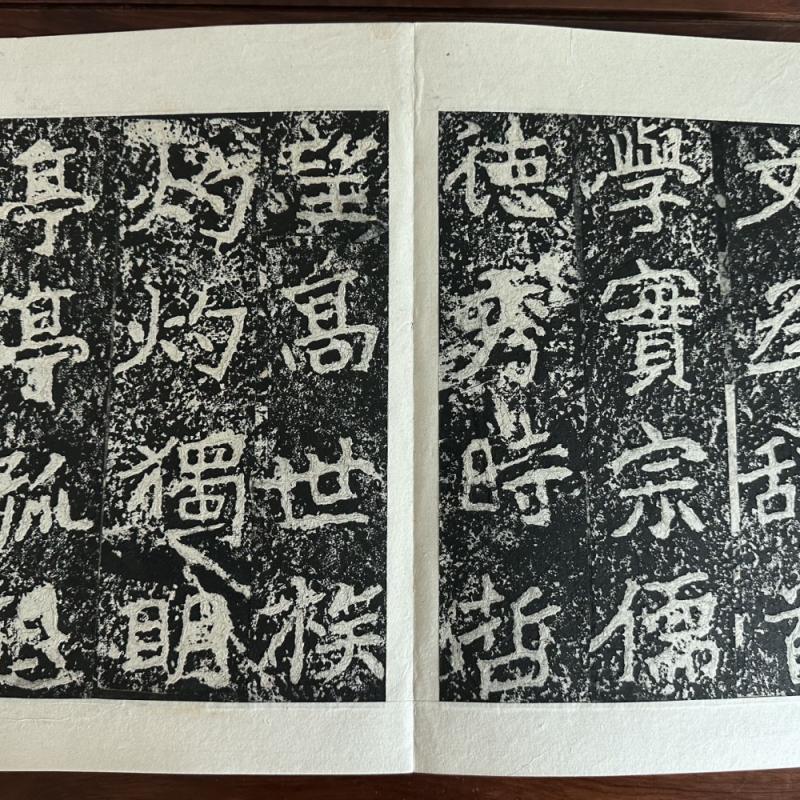 文
學實宗儒
德秀時哲
望高世族
灼灼獨明
亭亭孤